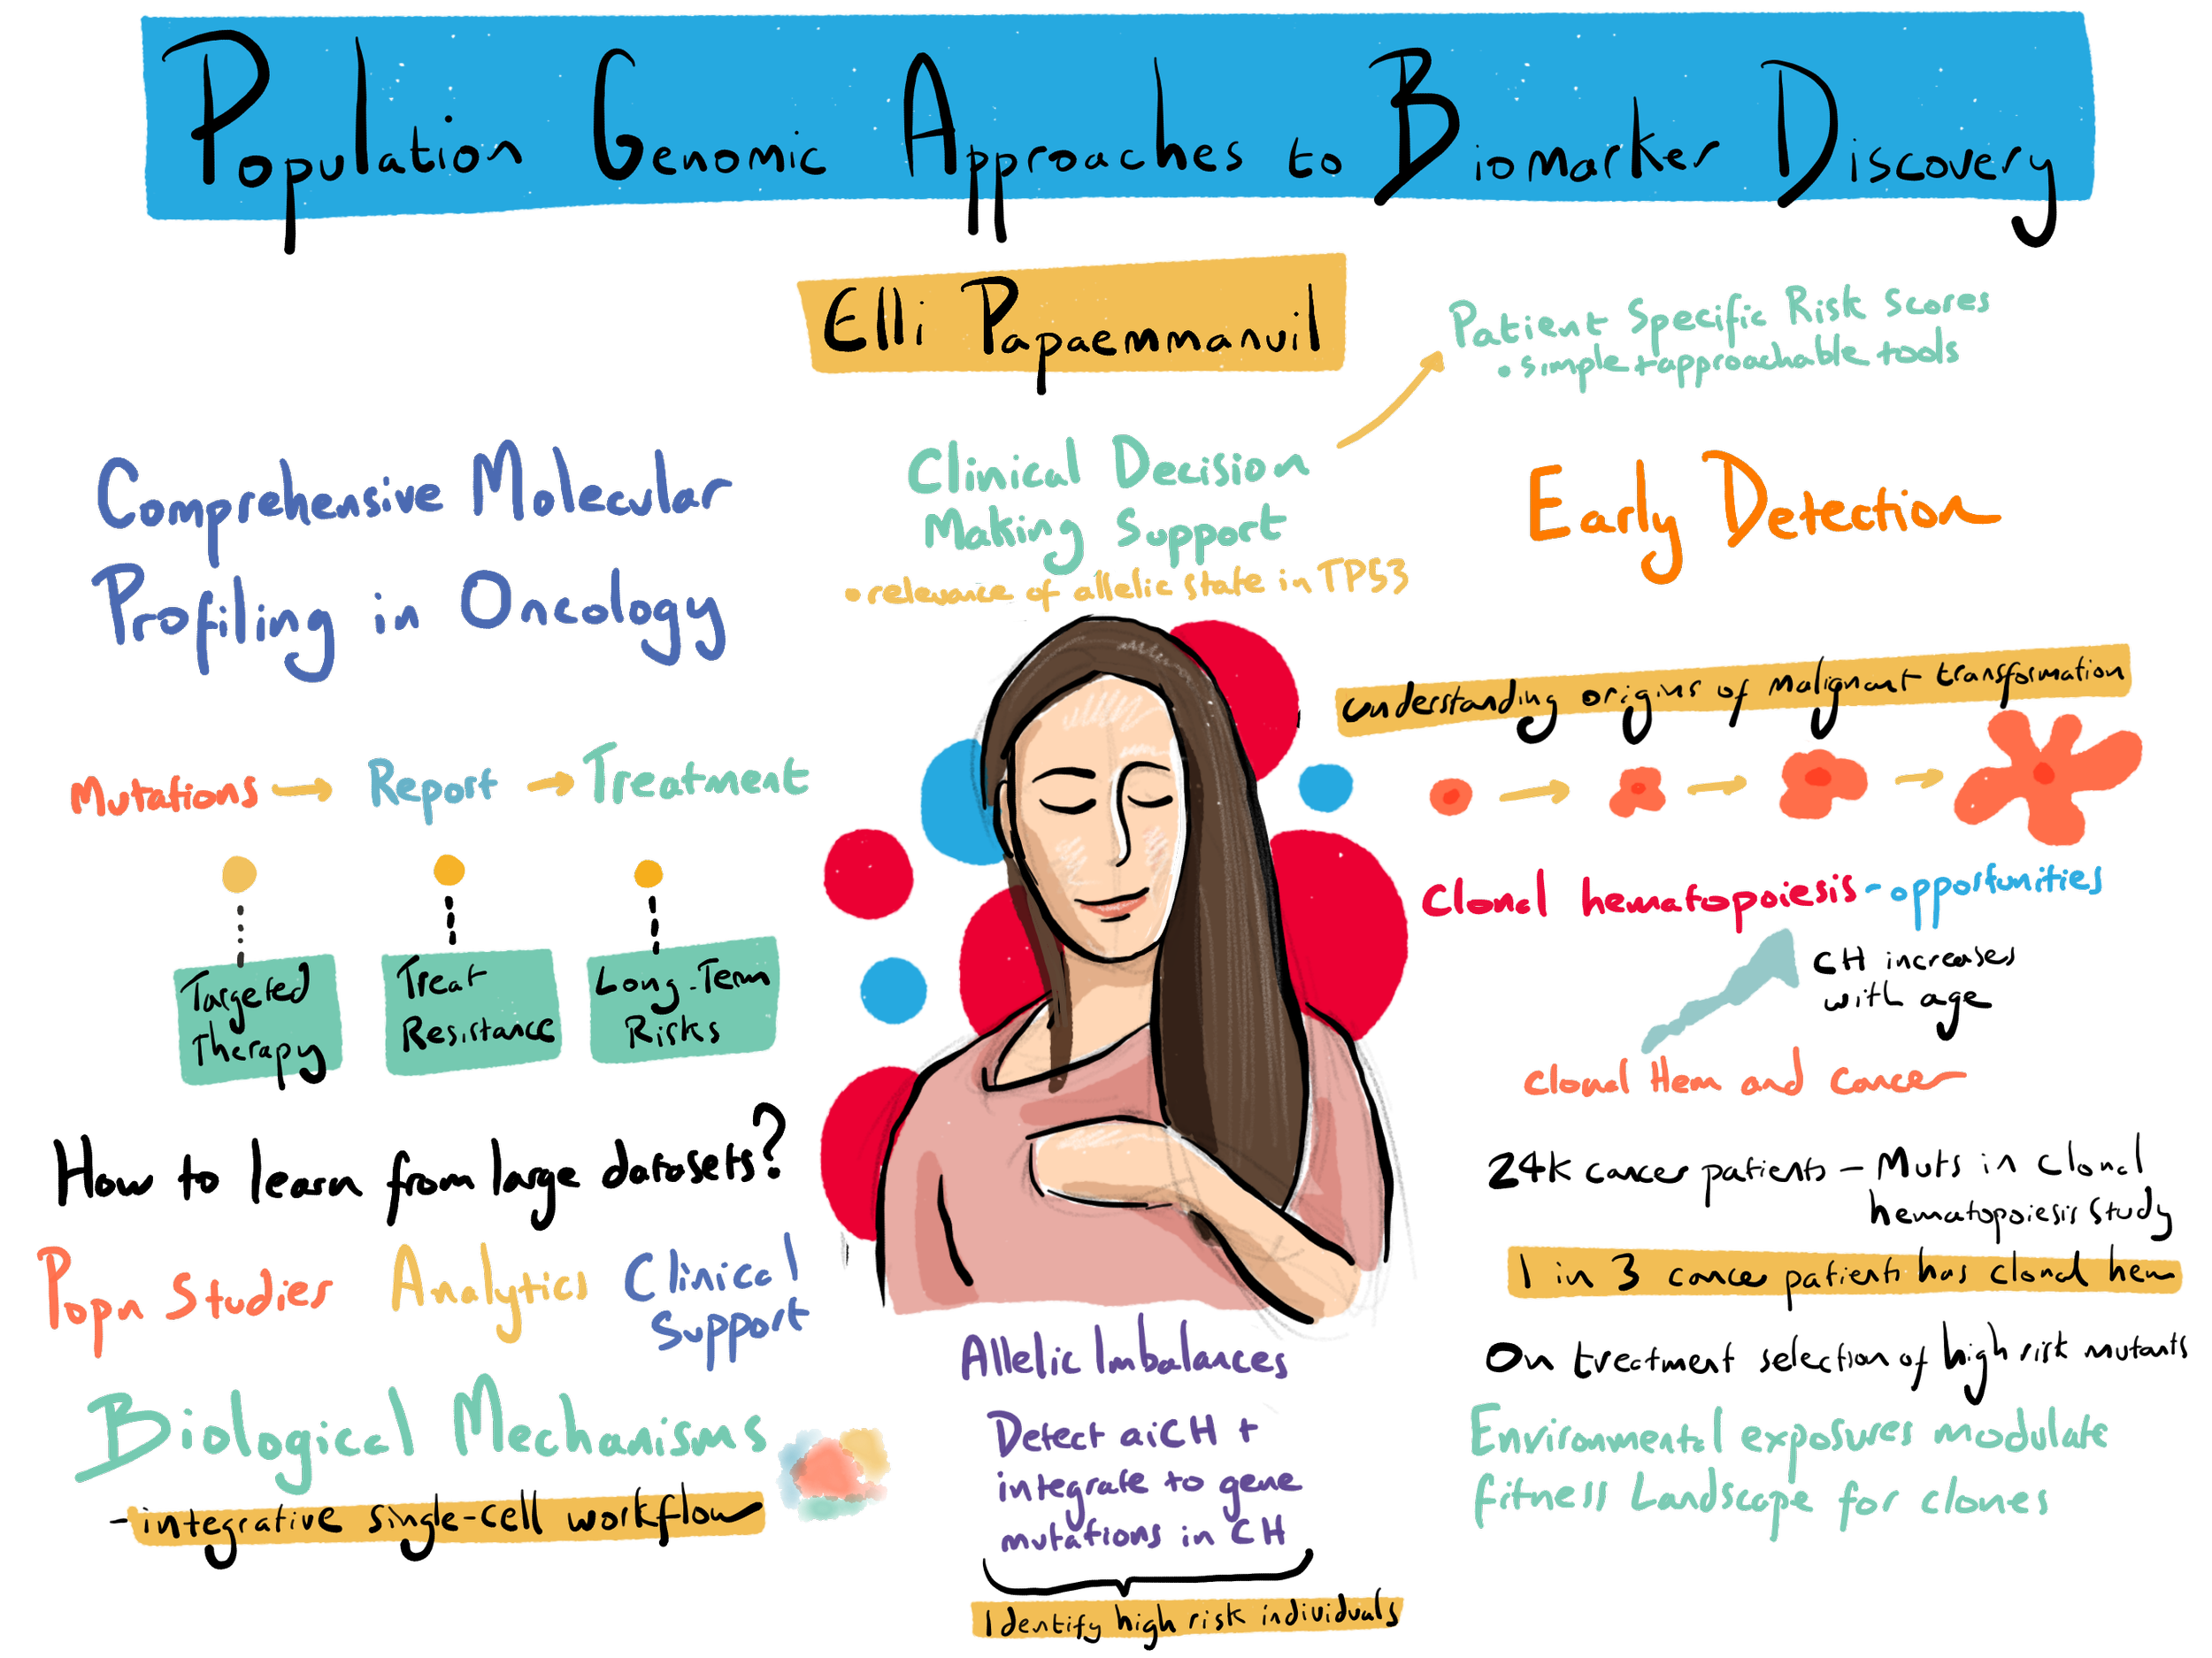 Population Genomic Approaches to Biomarker Discovery
Elli Papaemmanuil
Patient Specific Risk Scores
• simple + approachable tools
Clinical Decision
Making Support
• relevance of allelic state in TP53
Comprehensive Molecular
Profiling in Oncology
Mutations → Report → Treatment
Targeted
Therapy
Treat
Resistance
Long-Term
Risks
How to learn from large datasets?
Popn Studies
Analytics
Clinical
Support
Biological Mechanisms
- integrative single-cell workflow
Allelic Imbalances
Detect aiCH +
integrate to gene
mutations in CH
Identify high risk individuals
Early Detection
understanding origins of malignant transformation
Clonal hematopoiesis - opportunities
CH increases
with age
Clonal Hem and cancer
24K cancer patients - Muts in clonal
hematopoiesis study
1 in 3 cancer patients has clonal hem
On treatment selection of high risk mutants
Environmental exposures modulate
fitness Landscape for clones